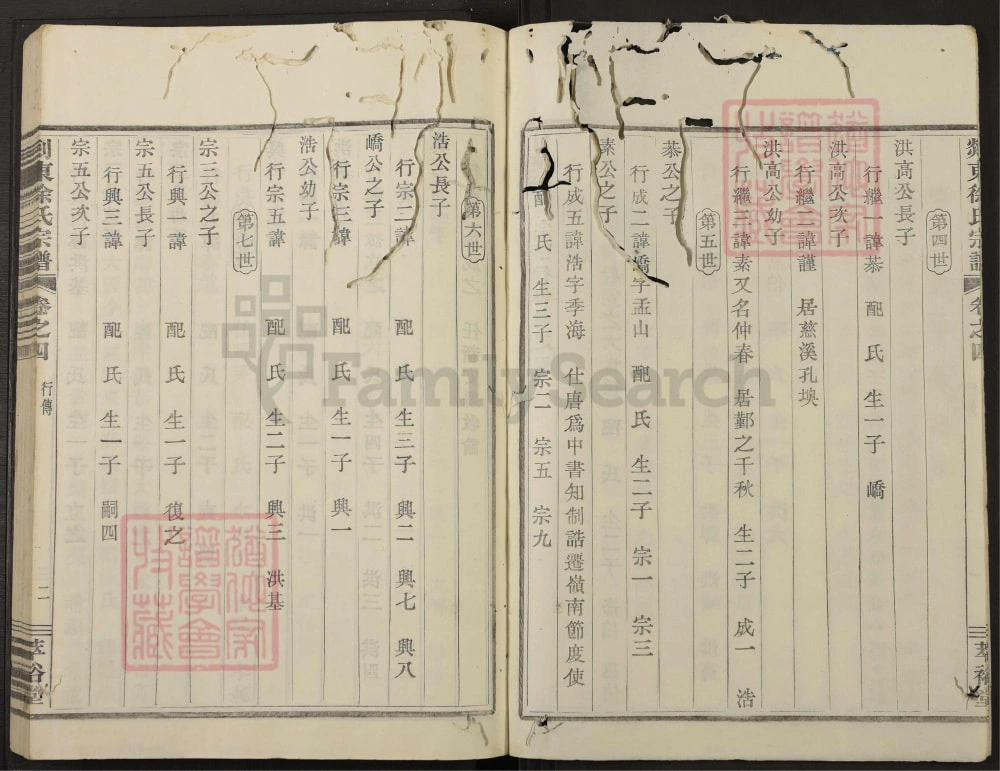 第四世
洪高公長子
行繼一諱恭 配 氏 生一子 嶠
洪高公次子
行繼二諱謹 居慈溪孔墺
洪高公幼子
行繼三諱素又名仲春 居鄞之千秋 生二子 成一 浩
第五世
恭公之子
行成二諱嶠字孟山 配 氏 生二子 宗一 宗三
素公之子
行成五諱浩字季海 仕唐爲中書知制誥遷嶺南節度使
配 氏 生三子 宗二 宗五 宗九
第六世
浩公長子
行宗二諱 配 氏 生三子 興二 興七 興八
嶠公之子
行宗三諱 配 氏 生一子 興一
浩公幼子
行宗五諱 配 氏 生二子 興三 洪基
第七世
宗三公之子
行興一諱 配 氏 生一子 復之
宗五公長子
行興三諱 配 氏 生一子 嗣四
宗五公次子
東徐氏宗譜 卷之四 行傳 二
FamilySearch